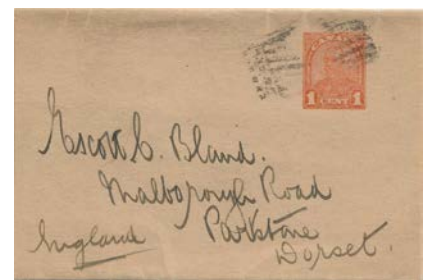 CANADA
1 CENT 1
Escott C. Bland.
Malborough Road
Parkstone
Dorset.
England